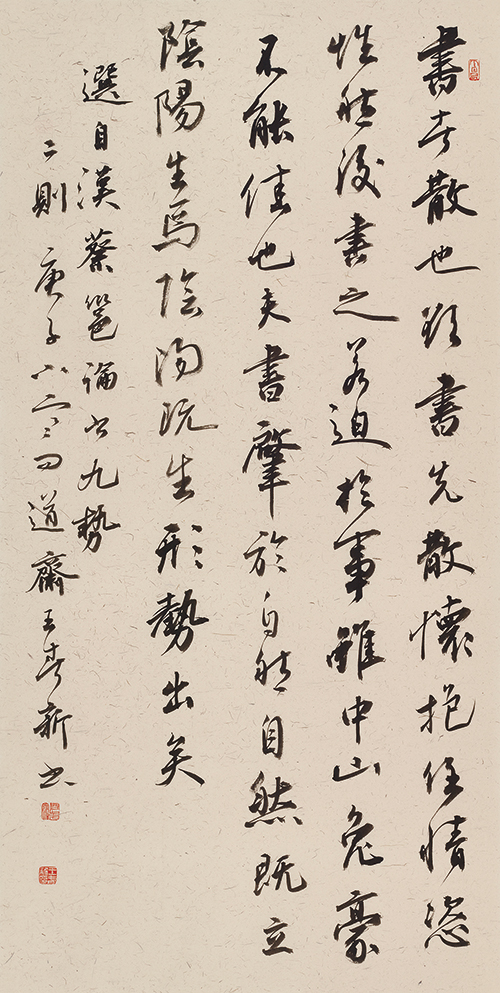 書者散也欲書先散懷抱任情恣
性然後書之若迫於事雖中山兔豪
不能佳也夫書肇於自然自然既立
陰陽生焉陰陽既生形勢出矣
選自漢蔡邕論书九勢
二則庚子道齋王春新书